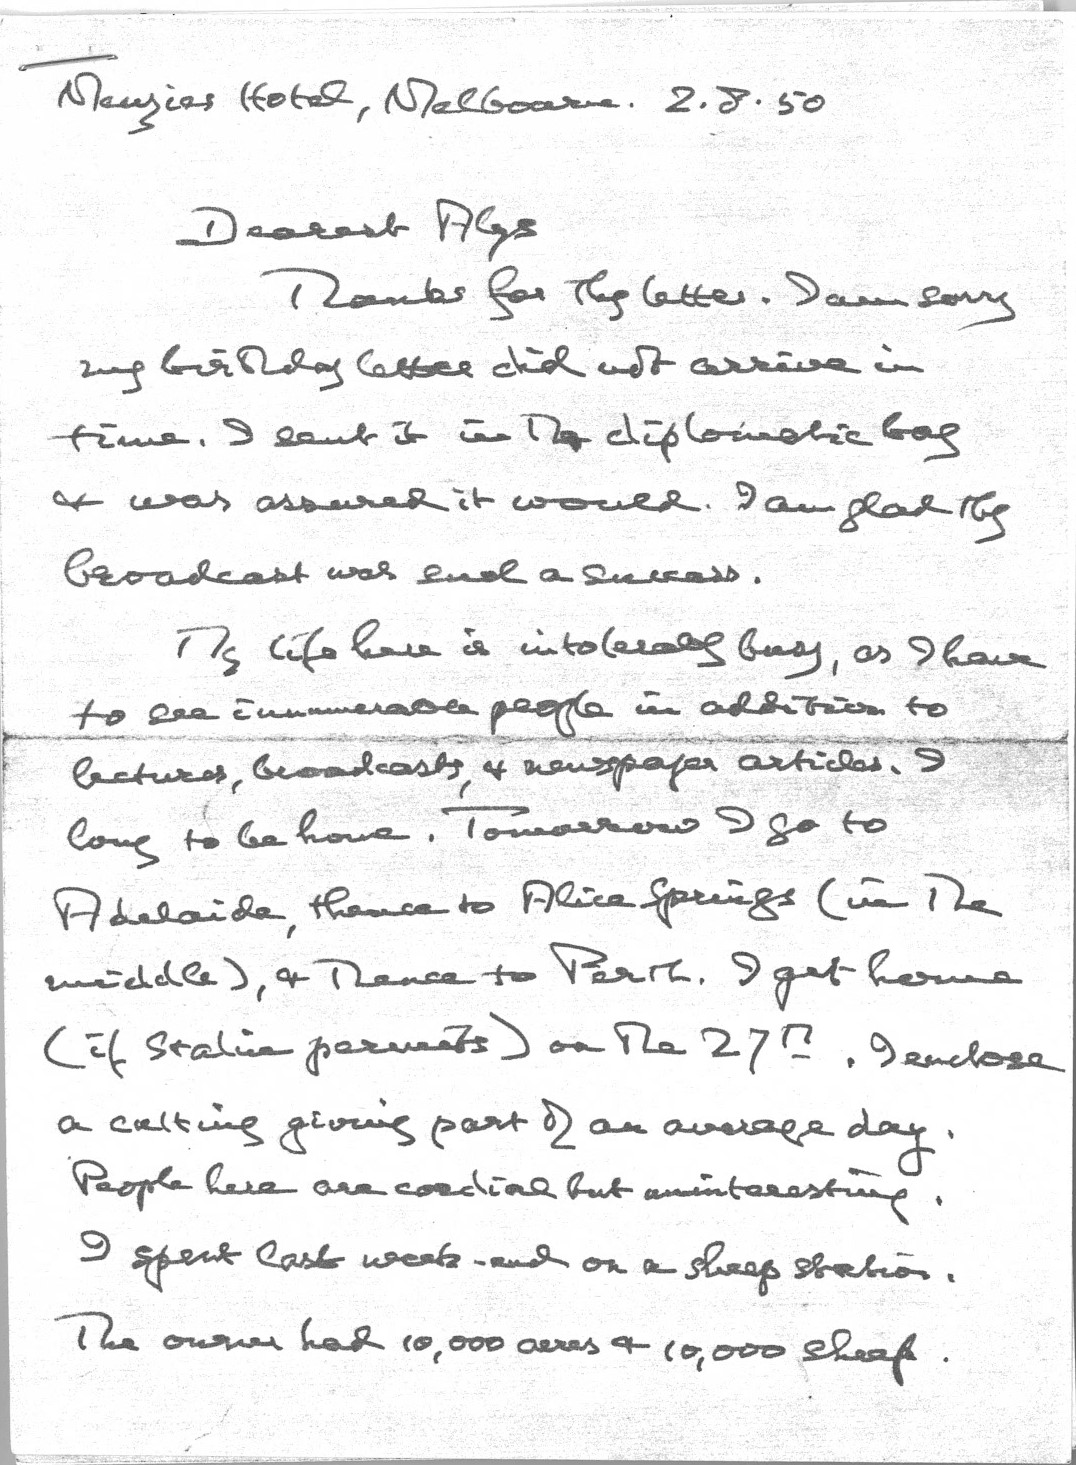 Menzies Hotel, Melbourne. 2.8.50
Dearest Alys
Thanks for thy letter. I am sorry
my birthday letter did not arrive in
time. I sent it in the diplomatic bag
& was assured it would. I am glad thy
broadcast was such a success.
My life here is intolerably busy, as I have
to see innumerable people in addition to
lectures, broadcasts, & newspaper articles. I
long to be home. Tomorrow I go to
Adelaide, thence to Alice Springs (in the
middle), & thence to Perth. I get home
(if Stalin permits) on the 27th. I enclose
a cutting giving part of an average day.
People here are cordial but uninteresting.
I spent last week-end on a sheep station.
The owner had 10,000 acres & 10,000 sheep.